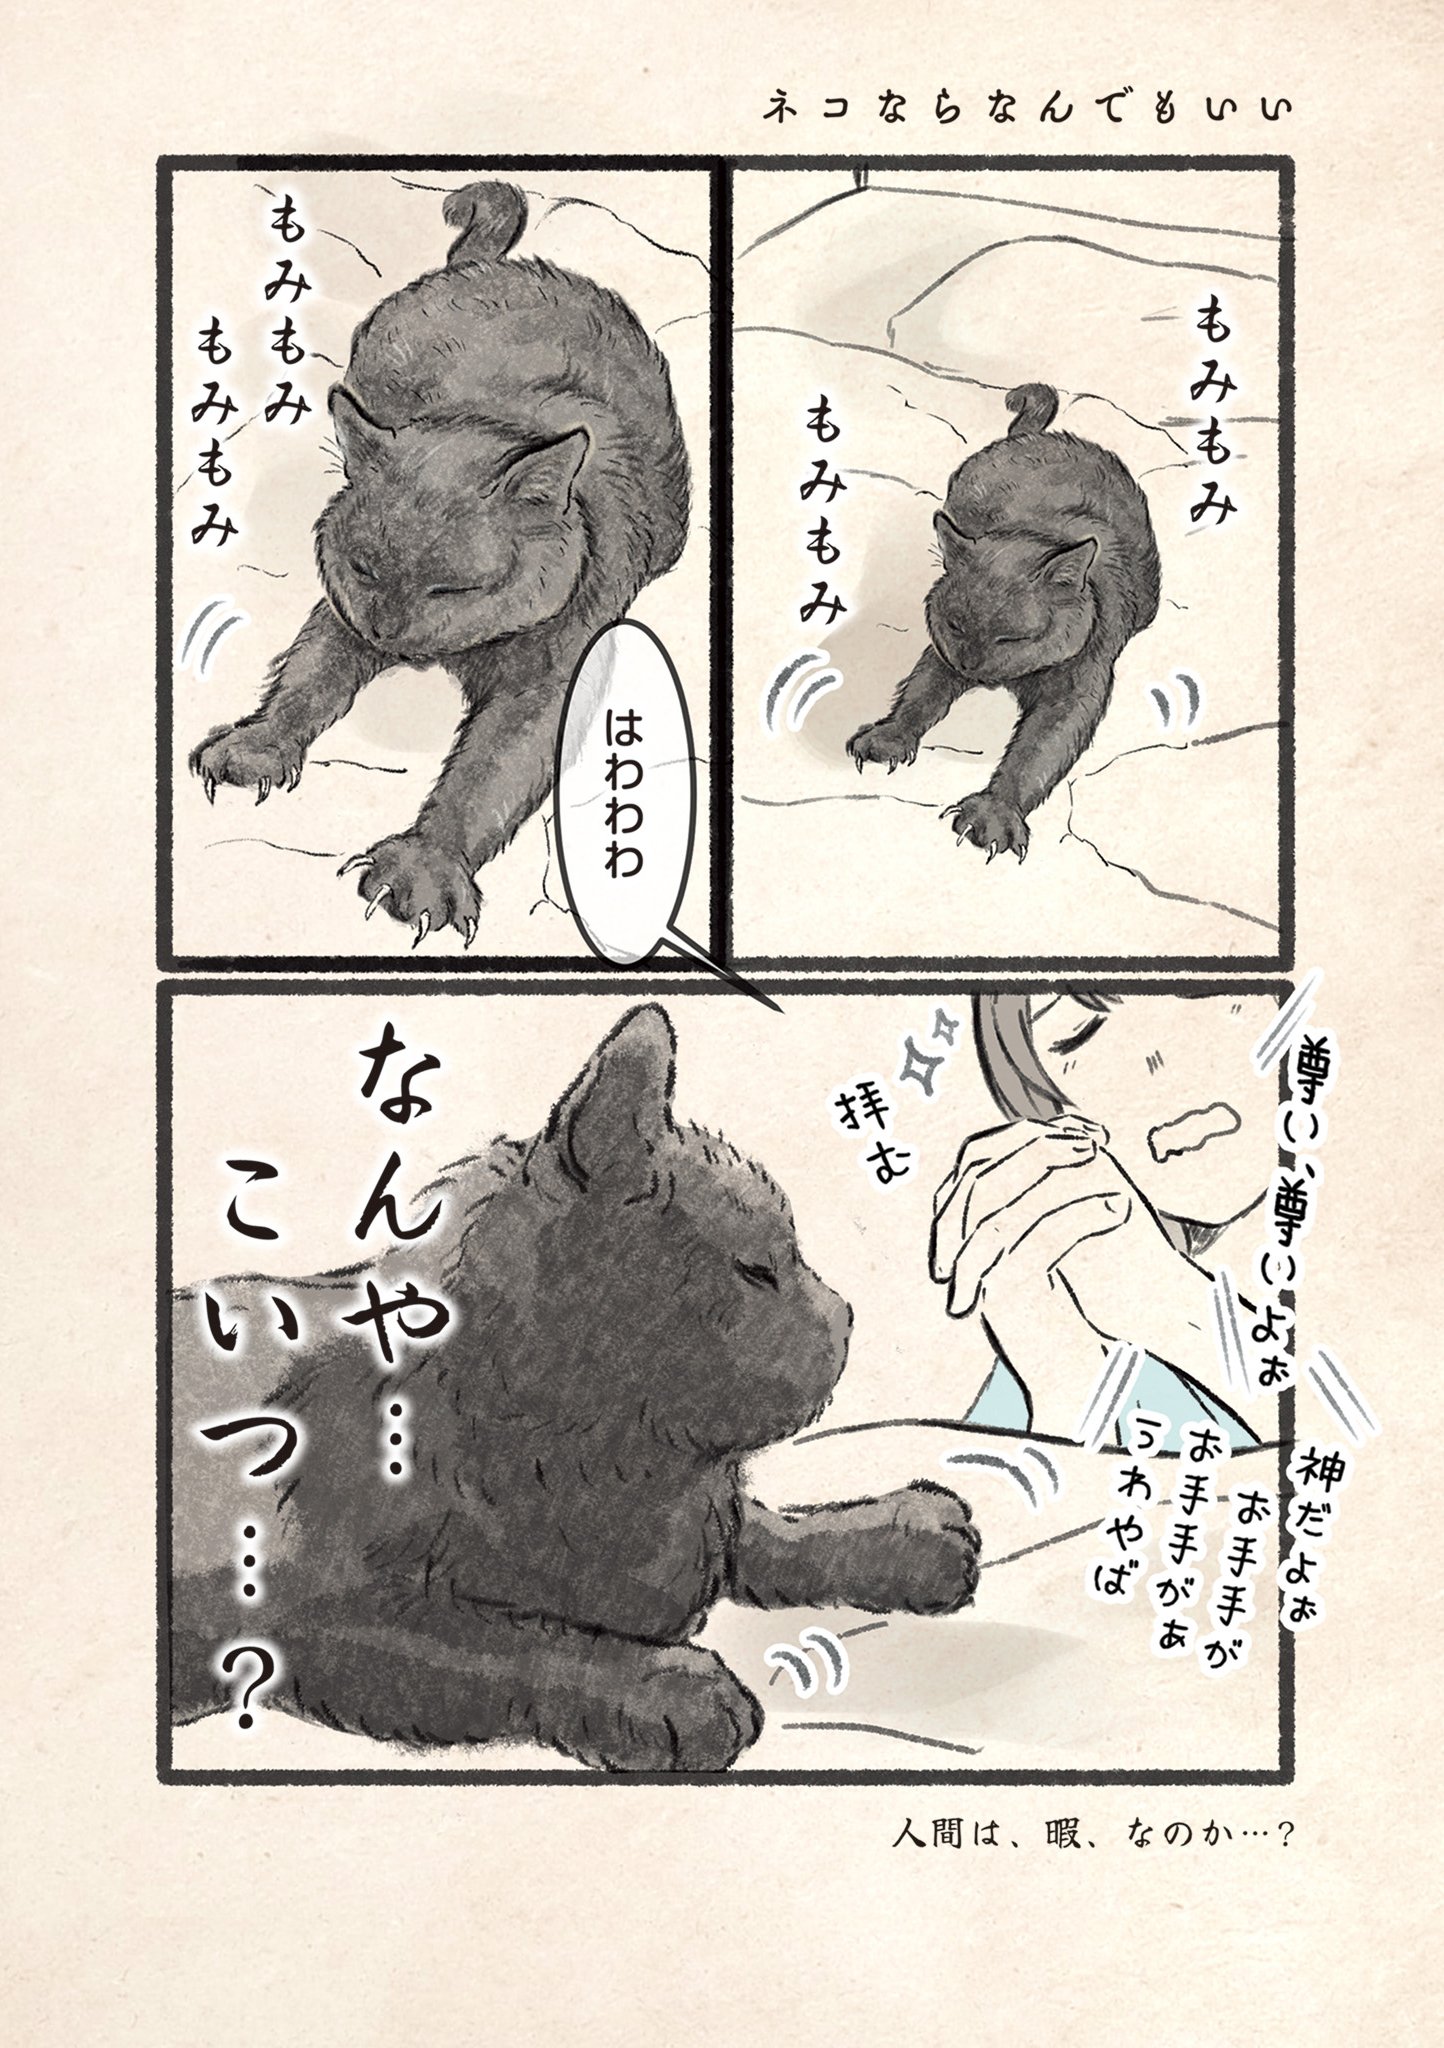 ネコならなんでもいい
もみもみ
もみもみ
もみもみ
もみもみ
はわわわ
尊い、尊いよぉ
拝む
神だよぉ
お手手が
お手手がぁ
うわやば
なんや…
こいつ…？
人間は、暇、なのか…？